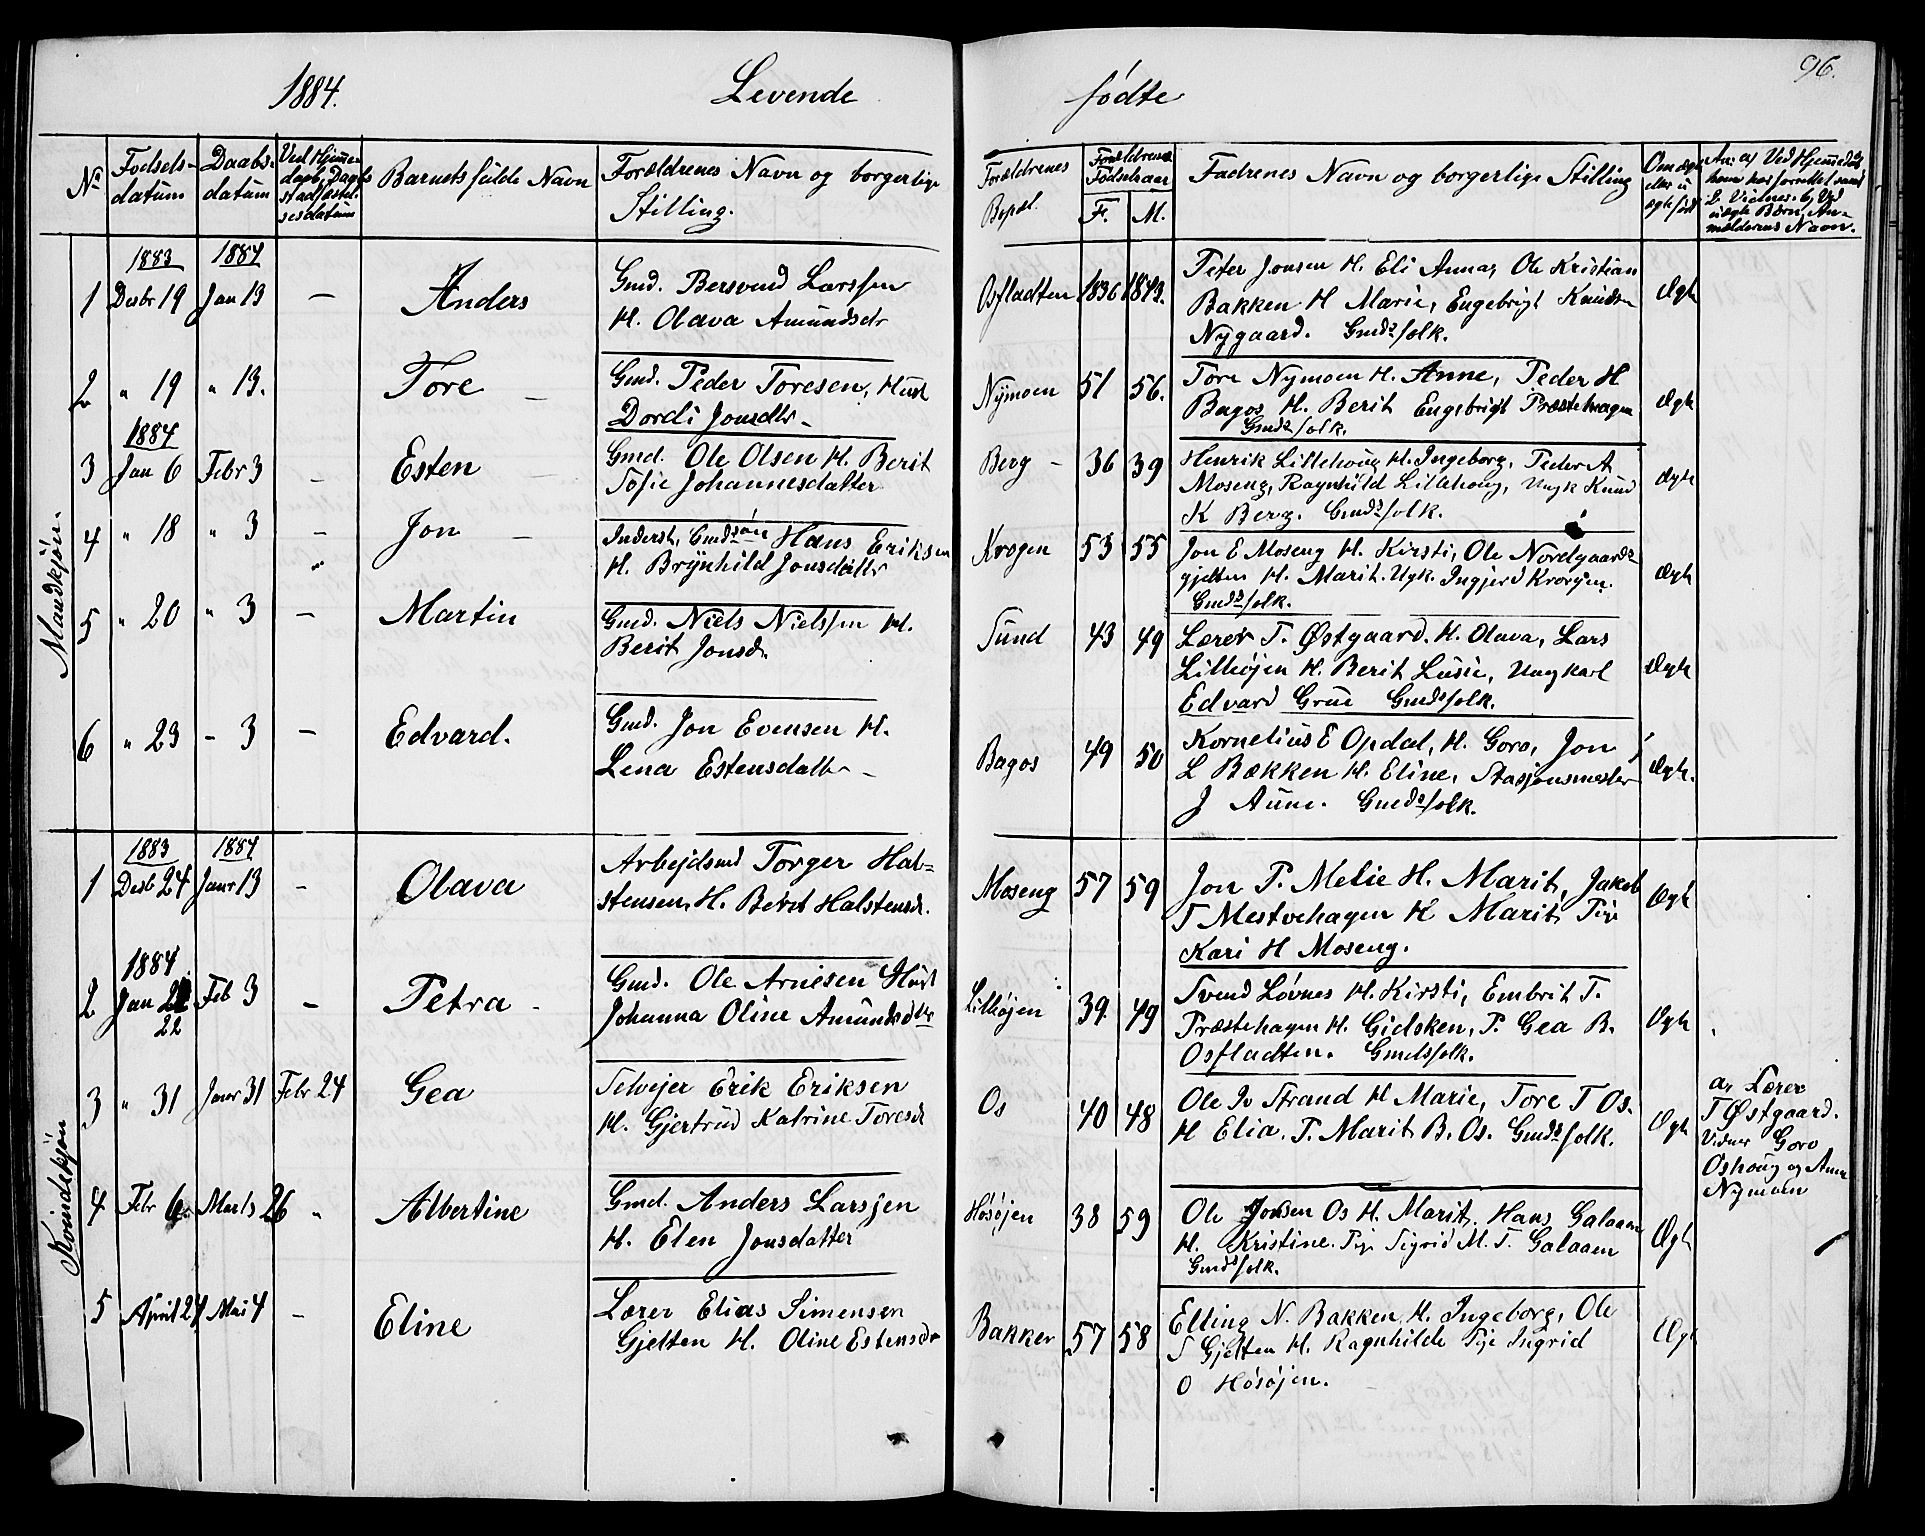 1884. Levende fødte 96.
No Fødsels- datum Daabs- datum Ved Hjemme- daab, Daabs stadfæstel- sesdatum Barnets fulde Navn Forældrenes Navn og borgerlige Stilling. Forældrenes Bopæl. Forældrenes Fødselsaar F. M. Fadrenes Navn og borgerlige Stilling Om ægte eller u- ægte født
An: a, Ved Hjemmedaab
2 Vidner. b, Ved
uægte Børn, An-
mælderens Navn.
Mandkjøn.
1883 1884
1 Desbr 19 Jan 13 — Anders
Gmd. Bersvend Larssen
H. Olava Amundsdr
Osfladten 1836 1843.
Peter Jonsen H. Eli Anna, Ole Kristian
Bakken H Marie, Engebrigt Knudsen
Nygaard. Gmdsfolk.
Ægte
2 " 19 " 13. Tore —
Gmd. Peder Toresen, Hust
Dordi Jonsdtr.
Nÿmoen 51 56.
Tore Nymoen H. Anne, Peder H
Bagos H. Berit Engebrigt Præstehagen
Gmdsfolk.
Ægte
1884
3 Jan 6 Febr 3 — Esten
Gmd. Ole Olsen H. Berit
Tofie Johannesdatter
Berg — 36 39
Henrik Lillehoug H. Ingeborg, Peder A
Moseng, Ragnhild Lillehoug, Ungk Knud
K Berg. Gmdsfolk.
ægte
4 " 18 " 3 — Jon —
Inderst, Gmdsøn Hans Eriksen
H. Brÿnhild Jonsdattr
Krogen 53 55
Jon E Moseng H. Kirsti, Ole Nordgaards-
gjelten H. Marit. Ugk. Ingjerd Krogen.
Gmdsfolk.
Ægte
5 " 20 " 3 — Martin
Gmd. Niels Nielssen H.
Berit Jonsd.
Sund 43 49
Lærer T. Østgaard. H. Olava, Lars
Lillhøjen H. Berit Lusie, Ungkarl
Edvard Grue Gmdsfolk.
Ægte
6 " 23 - 3 — Edvard.
Gmd. Jon Evensen H.
Lena Estensdatter -
Bagos 49 50
Kornelius E Opdal, H. Goro, Jon
L Bækken H. Eline, Stasjonsmester
J Aune. Gmdsfolk.
Ægte.
Kvindekjøn
1883 1884
1 Desb 24 Janr 13 — Olava
Arbejdsmd Torger Hal-
stensen, H. Berit Halstensd.
Moseng 57 59
Jon P. Melie H. Marit, Jakob
T Mestvehagen H Marit, Pige
Kari H Moseng.
Ægte
1884
2 Jan 22 Feb 3 — Petra -
22
Gmd. Ole Arnesen Hust
Johanna Oline Amundsdtr
Lillhøjen 39 49
Svend Løvnes H. Kirsti, Embrit T.
Præstehagen H. Gidsken, P. Gea B.
Osfladten. Gmdsfolk.
Ægte
3 " 31 Janr 31 Febr 24 Gea
Selvejer Erik Eriksen
H. Gjertrud Katrine Toresd
Os 40 48
Ole Iv Strand H Marie, Tore T Os.
H Elia. P. Marit B. Os. Gmdsfolk.
Ægte
a, Lærer
T Østgaard.
Vidner Goro
Oshoug og Anne
Nymoen
4 Febr 6 Marts 26 " Albertine
Gmd. Anders Larsjen
H. Elen Jonsdatter
Høsøjen 38 59
Ole Jonsen Os H. Marit. Hans Galaaen
H. Kristine. Pige Sigrid M. T. Galaaen
Gmdsfolk.
Ægte
5 April 24 Mai 4 — Eline
Lærer Elias Simensen
Gjelten H. Oline Estensdr
Bakken 57 58
Elling N. Bakken H. Ingeborg, Ole
S Gjelten H. Ragnhilde Pige Ingrid
O Høsøjen.
Ægte